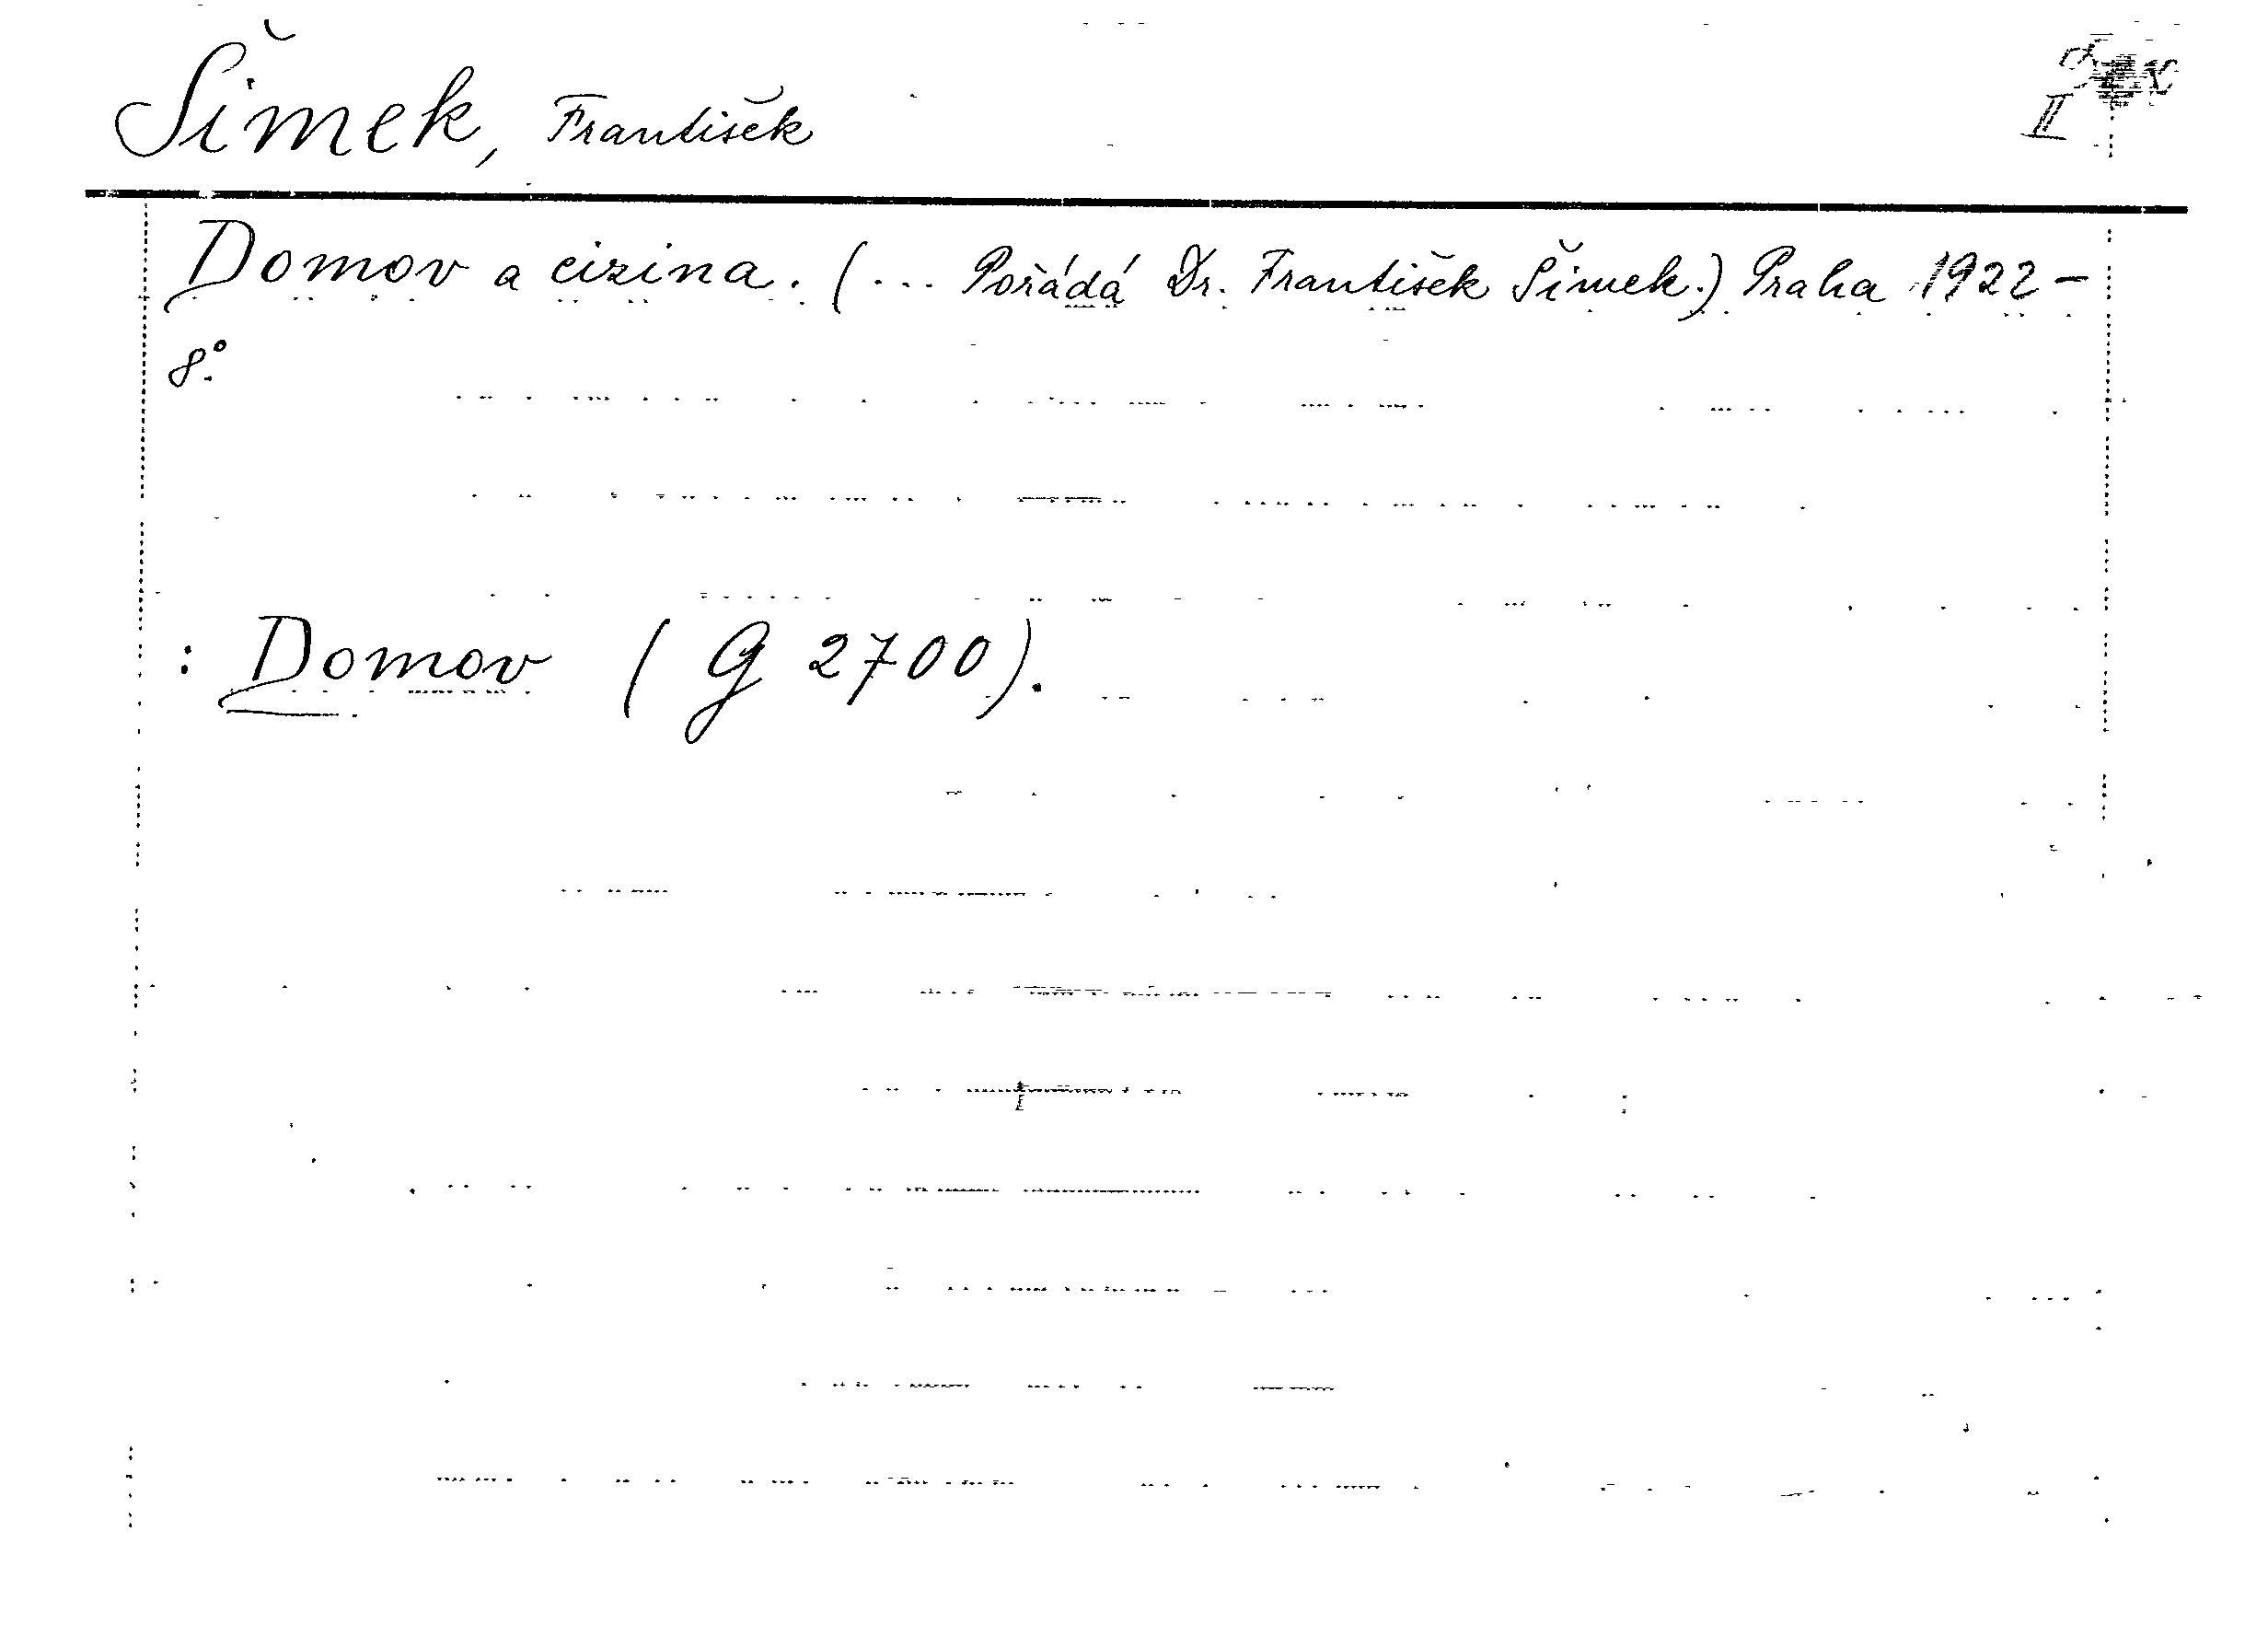 Šimek, František
II
Domov a cizina. (... Pořádá Dr. František Šimek.) Praha 1922 –
8°.
: Domov ( G 2700).